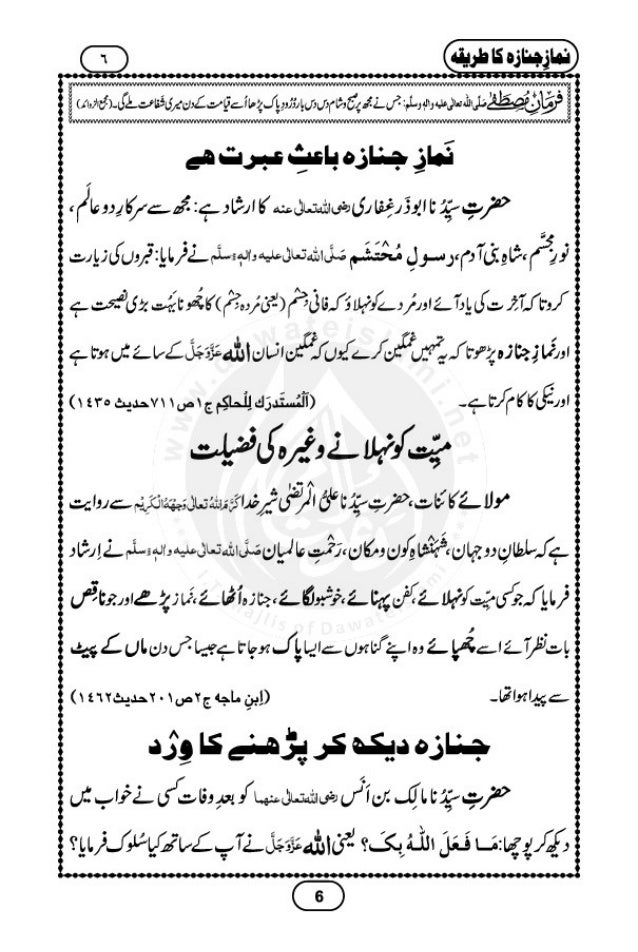 نمازِ جنازہ کا طریقہ
٦
فرمانِ مصطفےٰ صلَّی اللہ تعالٰی علیہ والہٖ وسلَّم: جس نے مجھ پر صبح و شام دس دس بار دُرُودِ پاک پڑھا اُسے قیامت کے دن میری شفاعت ملے گی۔ (مجمع الزوائد)
نَمازِ جنازہ باعثِ عبرت ہے
حضرتِ سیِّدُنا ابوذَر غِفاری رضی اللہ تعالٰی عنہ کا ارشاد ہے: مجھ سے سرکارِ دو عالَم،
نورِ مجسَّم، شاہِ بنی آدم، رسولِ مُحْتَشَم صلَّی اللہ تعالٰی علیہ والہٖ وسلَّم نے فرمایا: قبروں کی زیارت
کرو تا کہ آخِرت کی یاد آئے اور مُردے کو نہلاؤ کہ فانی جِسْم (یعنی مُردہ جِسْم) کا چُھونا بَہُت بڑی نصیحت ہے
اور نَمازِ جنازہ پڑھو تا کہ یہ تمہیں غمگین کرے کیوں کہ غمگین انسان اللہ عَزَّوَجَلَّ کے سائے میں ہوتا ہے
اور نیکی کا کام کرتا ہے۔ (اَلْمُستَدرَك لِلْحاكِم ج١ ص٧١١ حديث ١٤٣٥)
میِّت کو نہلانے وغیرہ کی فضیلت
مولائے کائنات، حضرتِ سیِّدُنا علیُّ المُرتَضٰی شیرِ خدا کَرَّمَ اللہُ تعالٰی وَجْہَہُ الْکَرِیْم سے روایت
ہے کہ سلطانِ دو جہان، شَہَنْشاہِ کون و مکان، رَحْمتِ عالمیان صلَّی اللہ تعالٰی علیہ والہٖ وسلَّم نے اِرشاد
فرمایا کہ جو کسی میِّت کو نہلائے، کفن پہنائے، خوشبو لگائے، جنازہ اُٹھائے، نَماز پڑھے اور جو ناقِص
بات نظر آئے اسے چُھپائے وہ اپنے گناہوں سے ایسا پاک ہو جاتا ہے جیسا جس دن ماں کے پیٹ
سے پیدا ہوا تھا۔ (اِبن ماجه ج٢ ص ٢٠١ حديث ١٤٦٢)
جنازہ دیکھ کر پڑھنے کا وِرْد
حضرتِ سیِّدُنا مالِک بن اَنَس رضی اللہ تعالٰی عنہما کو بعدِ وفات کسی نے خواب میں
دیکھ کر پوچھا: مَا فَعَلَ اللّٰهُ بِكَ؟ یعنی اللہ عَزَّوَجَلَّ نے آپ کے ساتھ کیا سُلوک فرمایا؟
6
www.dawateislami.net
I.T Majlis of DawateIslami